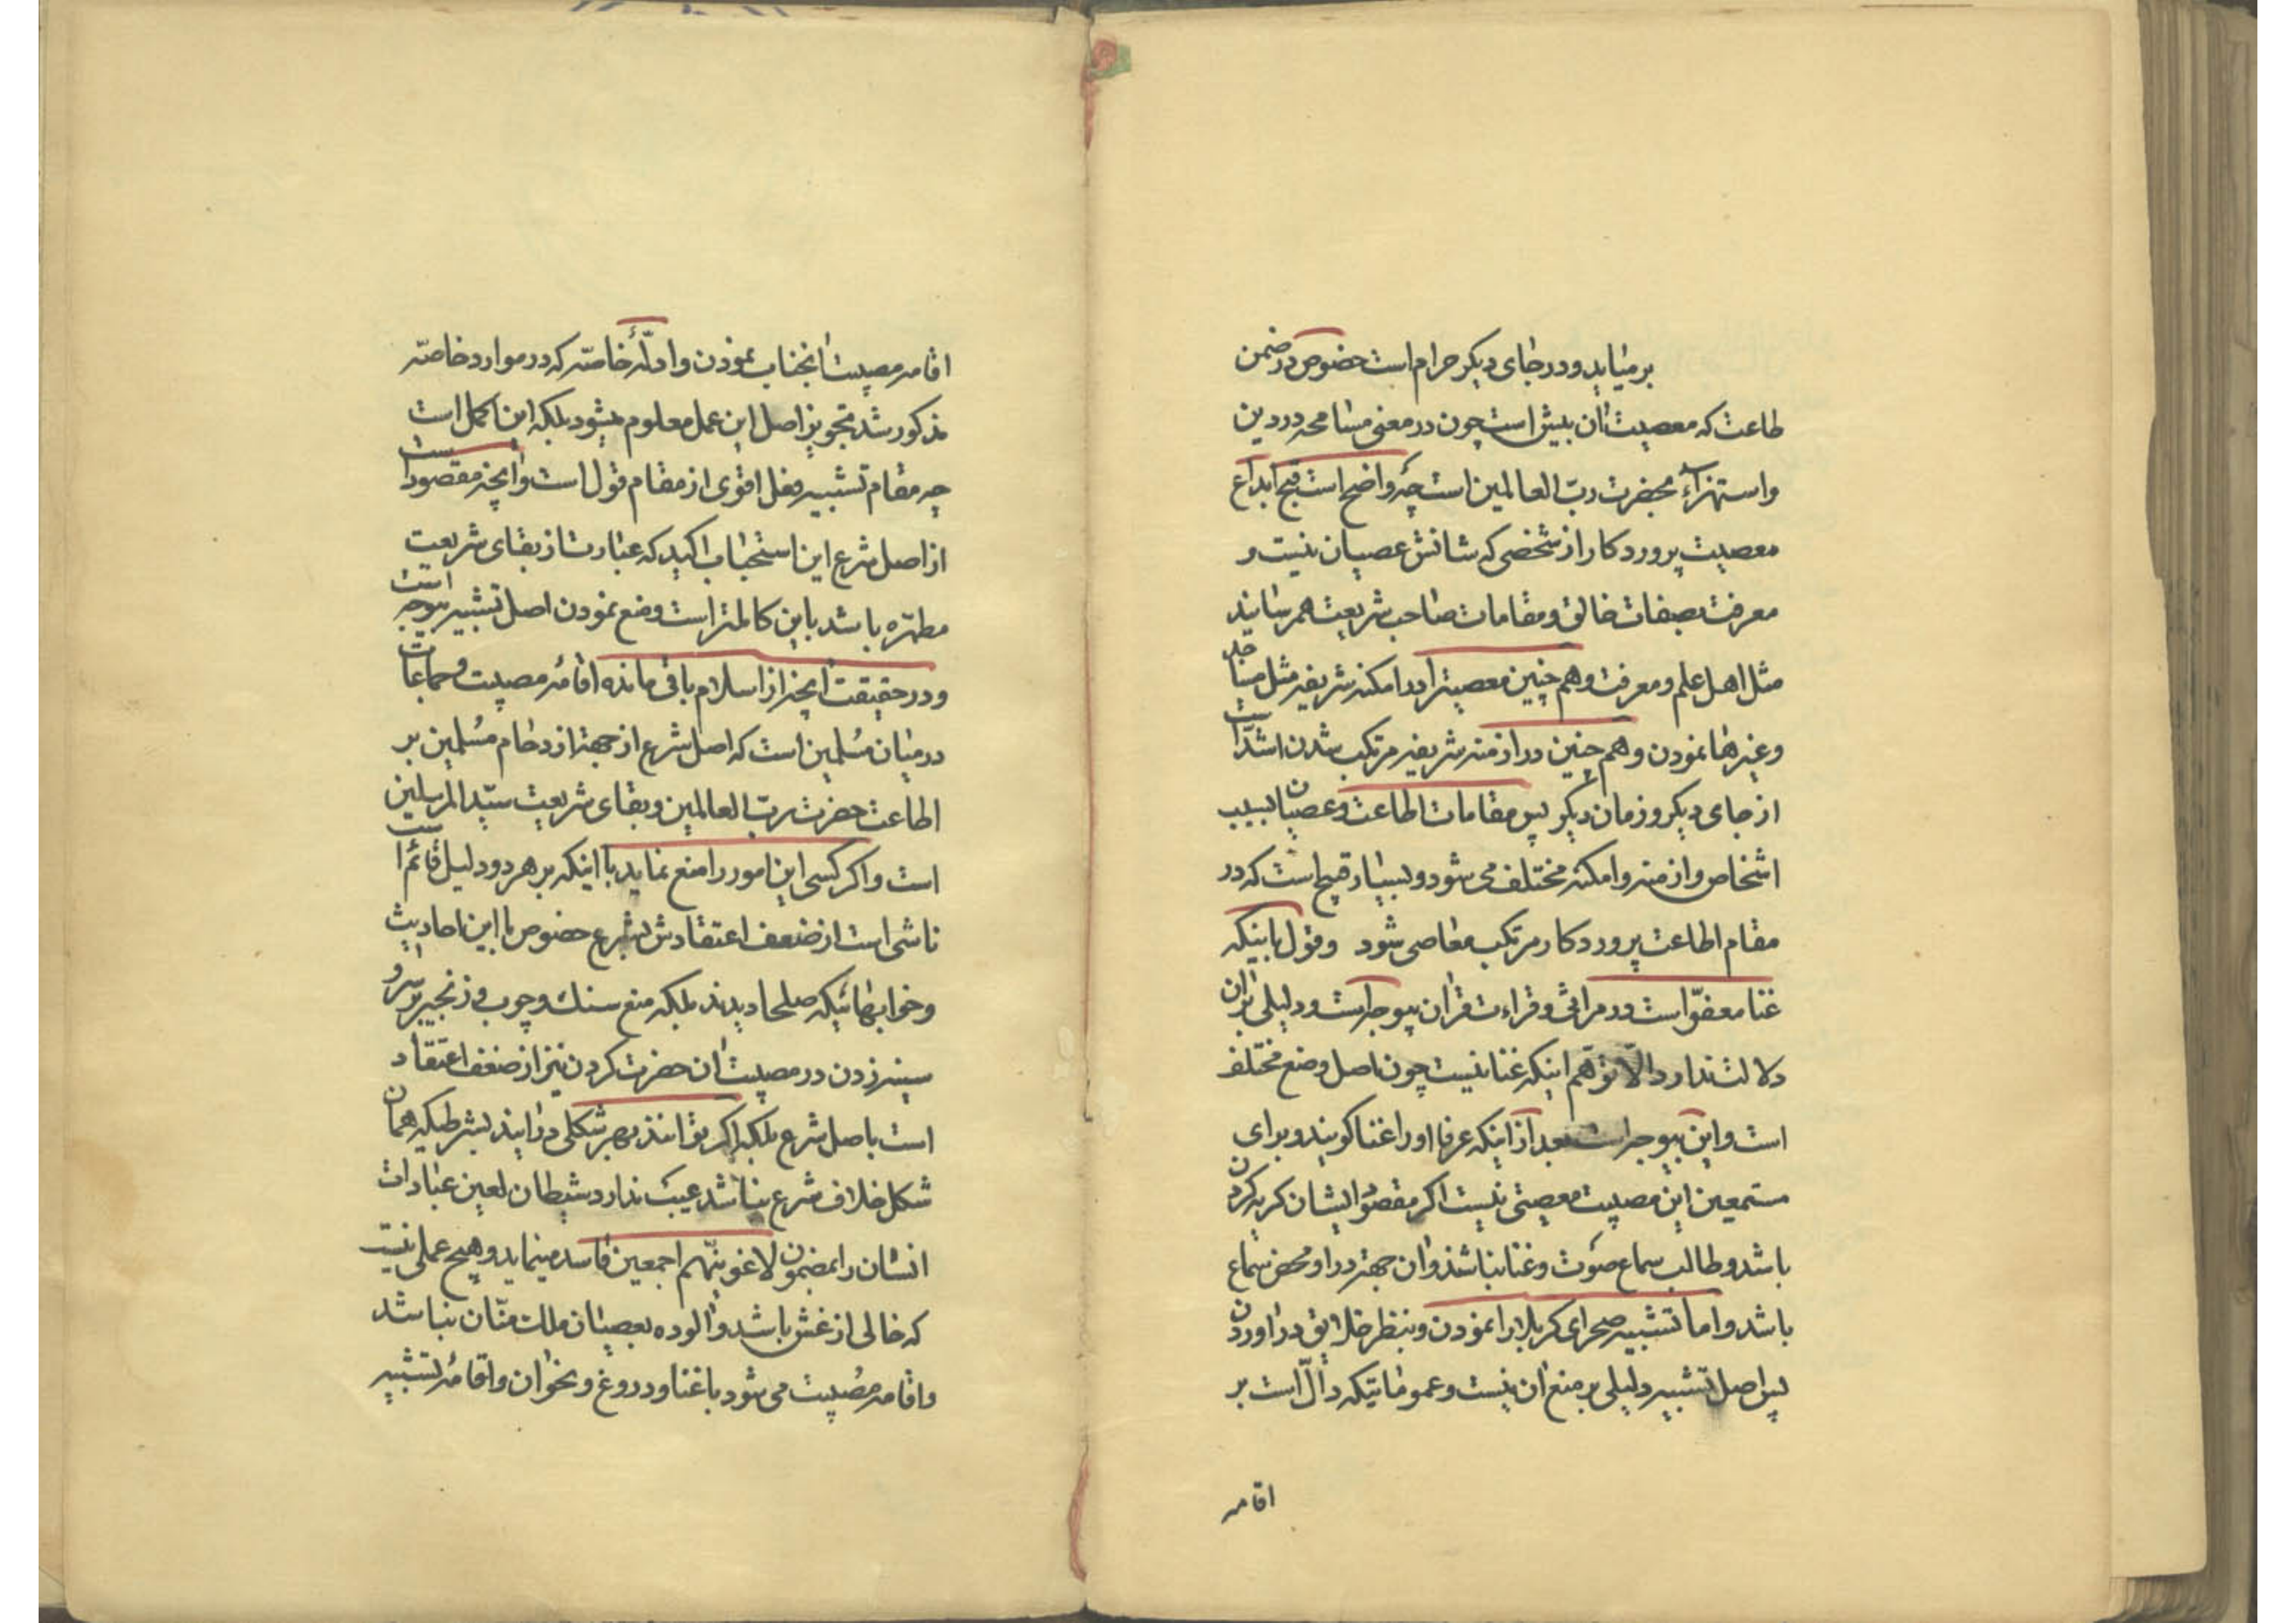 برمیاید و در جای دیکر حرام است خصوص در ضمن
طاعت که معصیت آن بیش است چون در معنی مسامحه در دین
و استهزاء بحضرت ربّ العالمین است چه واضح است قبح ابداع
معصیت پروردکار از شخصی که شانش عصیان نیست و
معرفت بصفات خالق و مقامات صاحب شریعت بهمرسانید
مثل اهل علم و معرفت و هم چنین معصیترا در امکنه شریفه مثل مساجد
و غیرها نمودن و هم چنین در ازمنه شریفه مرتکب شدن اشدّ است
از جای دیکر و زمان دیکر پس مقامات اطاعت و عصیان بسبب
اشخاص و ازمنه و امکنه مختلف می شود و بسیار قبیح است که در
مقام اطاعت پروردکار مرتکب معاصی شود و قول باینکه
غنا معفوّ است در مراثی و قراءت قران بیوجه است و دلیلی بران
دلالت ندارد الّا توهّم اینکه غنا نیست چون اصل وضع مختلف
است و این بیوجه است بعد از اینکه عرفا او را غنا کویند و برای
مستمعین این مصیبت معصیتی نیست اکر مقصود ایشان کریه کردن
باشد و طالب سماع صوت و غنا نباشند و ان جهة در او محض سماع
باشد و اما تشبیه صحرای کربلا را نمودن و بنظر خلایق در اوردن
پس اصل تشبیه دلیلی بر منع ان نیست و عموماتیکه دالّ است بر
اقامه
اقامه مصیبت آنجناب نمودن و ادلّهٔ خاصّه که در موارد خاصّه
مذکور شد تجویز اصل این عمل معلوم میشود بلکه این اکمل است
چه مقام تشبیه فعل اقوی از مقام قول است و آنچه مقصود است
از اصل شرع این استحباب اکید که عبارت از بقای شریعت
مطهّره باشد باین کاملتر است و منع نمودن اصل تشبیه بیوجه است
و در حقیقت آنچه از اسلام باقی مانده اقامهٔ مصیبت و جماعات
در میان مسلمین است که اصل شرع از جهة ازدحام مسلمین بر
اطاعت حضرت ربّ العالمین و بقای شریعت سیّد المرسلین
است و اکر کسی این امور را منع نماید با اینکه بر هر دو دلیل قائم است
ناشی است از ضعف اعتقادش بشرع خصوص با این احادیث
و خوابهائیکه صلحا دیدند بلکه منع سنك و چوب و زنجیر بر سر و
سینه زدن در مصیبت آن حضرت کردن نیز از ضعف اعتقاد
است باصل شرع بلکه اکر بتوانند بهر شکلی درایند بشرطیکه همان
شکل خلاف شرع نباشد عیب ندارد شیطان لعین عبادات
انسان را بمضمون لاغوینّهم اجمعین فاسد مینماید و هیچ عملی نیست
که خالی از غش باشد و الوده بعصیان ملك منّان نباشد
و اقامه مصیبت می شود با غنا و دروغ و نخوان و اقامهٔ تشبیه